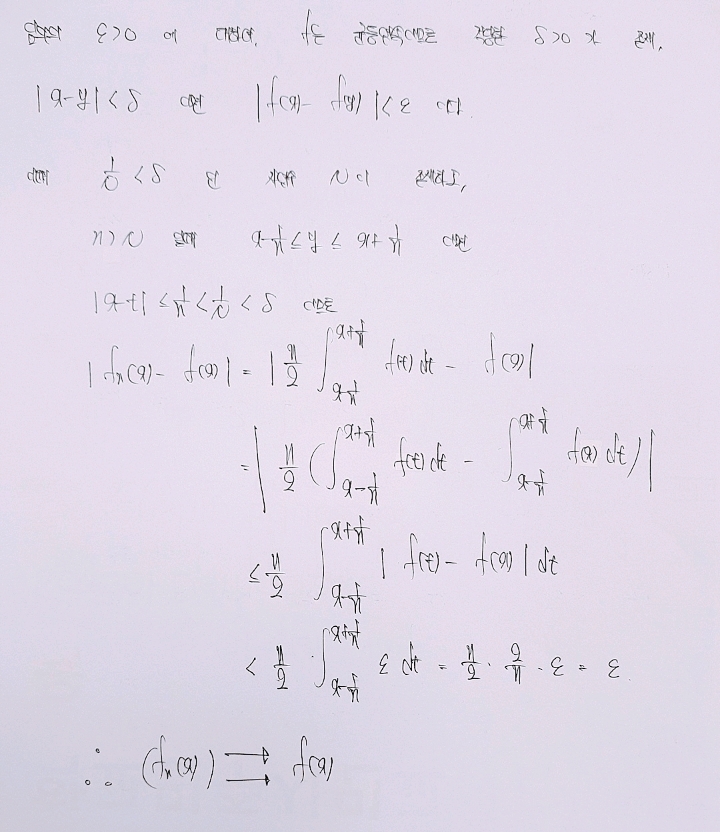 임의의 ε>0 에 대하여, f는 균등연속이므로 적당한 δ>0 가 존재,
|x-y|<δ 이면 |f(x)-f(y)|<ε 이다.
이때 1/N<δ 인 자연수 N이 존재하고,
n>N 일때 x-1/n≤y≤x+1/n 이면
|x-t|≤1/n<1/N<δ 이므로
|fₙ(x)-f(x)|=|n/2 ∫_{x-1/n}^{x+1/n} f(t)dt - f(x)|
=|n/2(∫_{x-1/n}^{x+1/n} f(t)dt - ∫_{x-1/n}^{x+1/n} f(x)dt)|
≤n/2 ∫_{x-1/n}^{x+1/n} |f(t)-f(x)|dt
<n/2·∫_{x-1/n}^{x+1/n} ε dt = n/2·2/n·ε = ε.
∴ (fₙ(x)) ⇉ f(x)